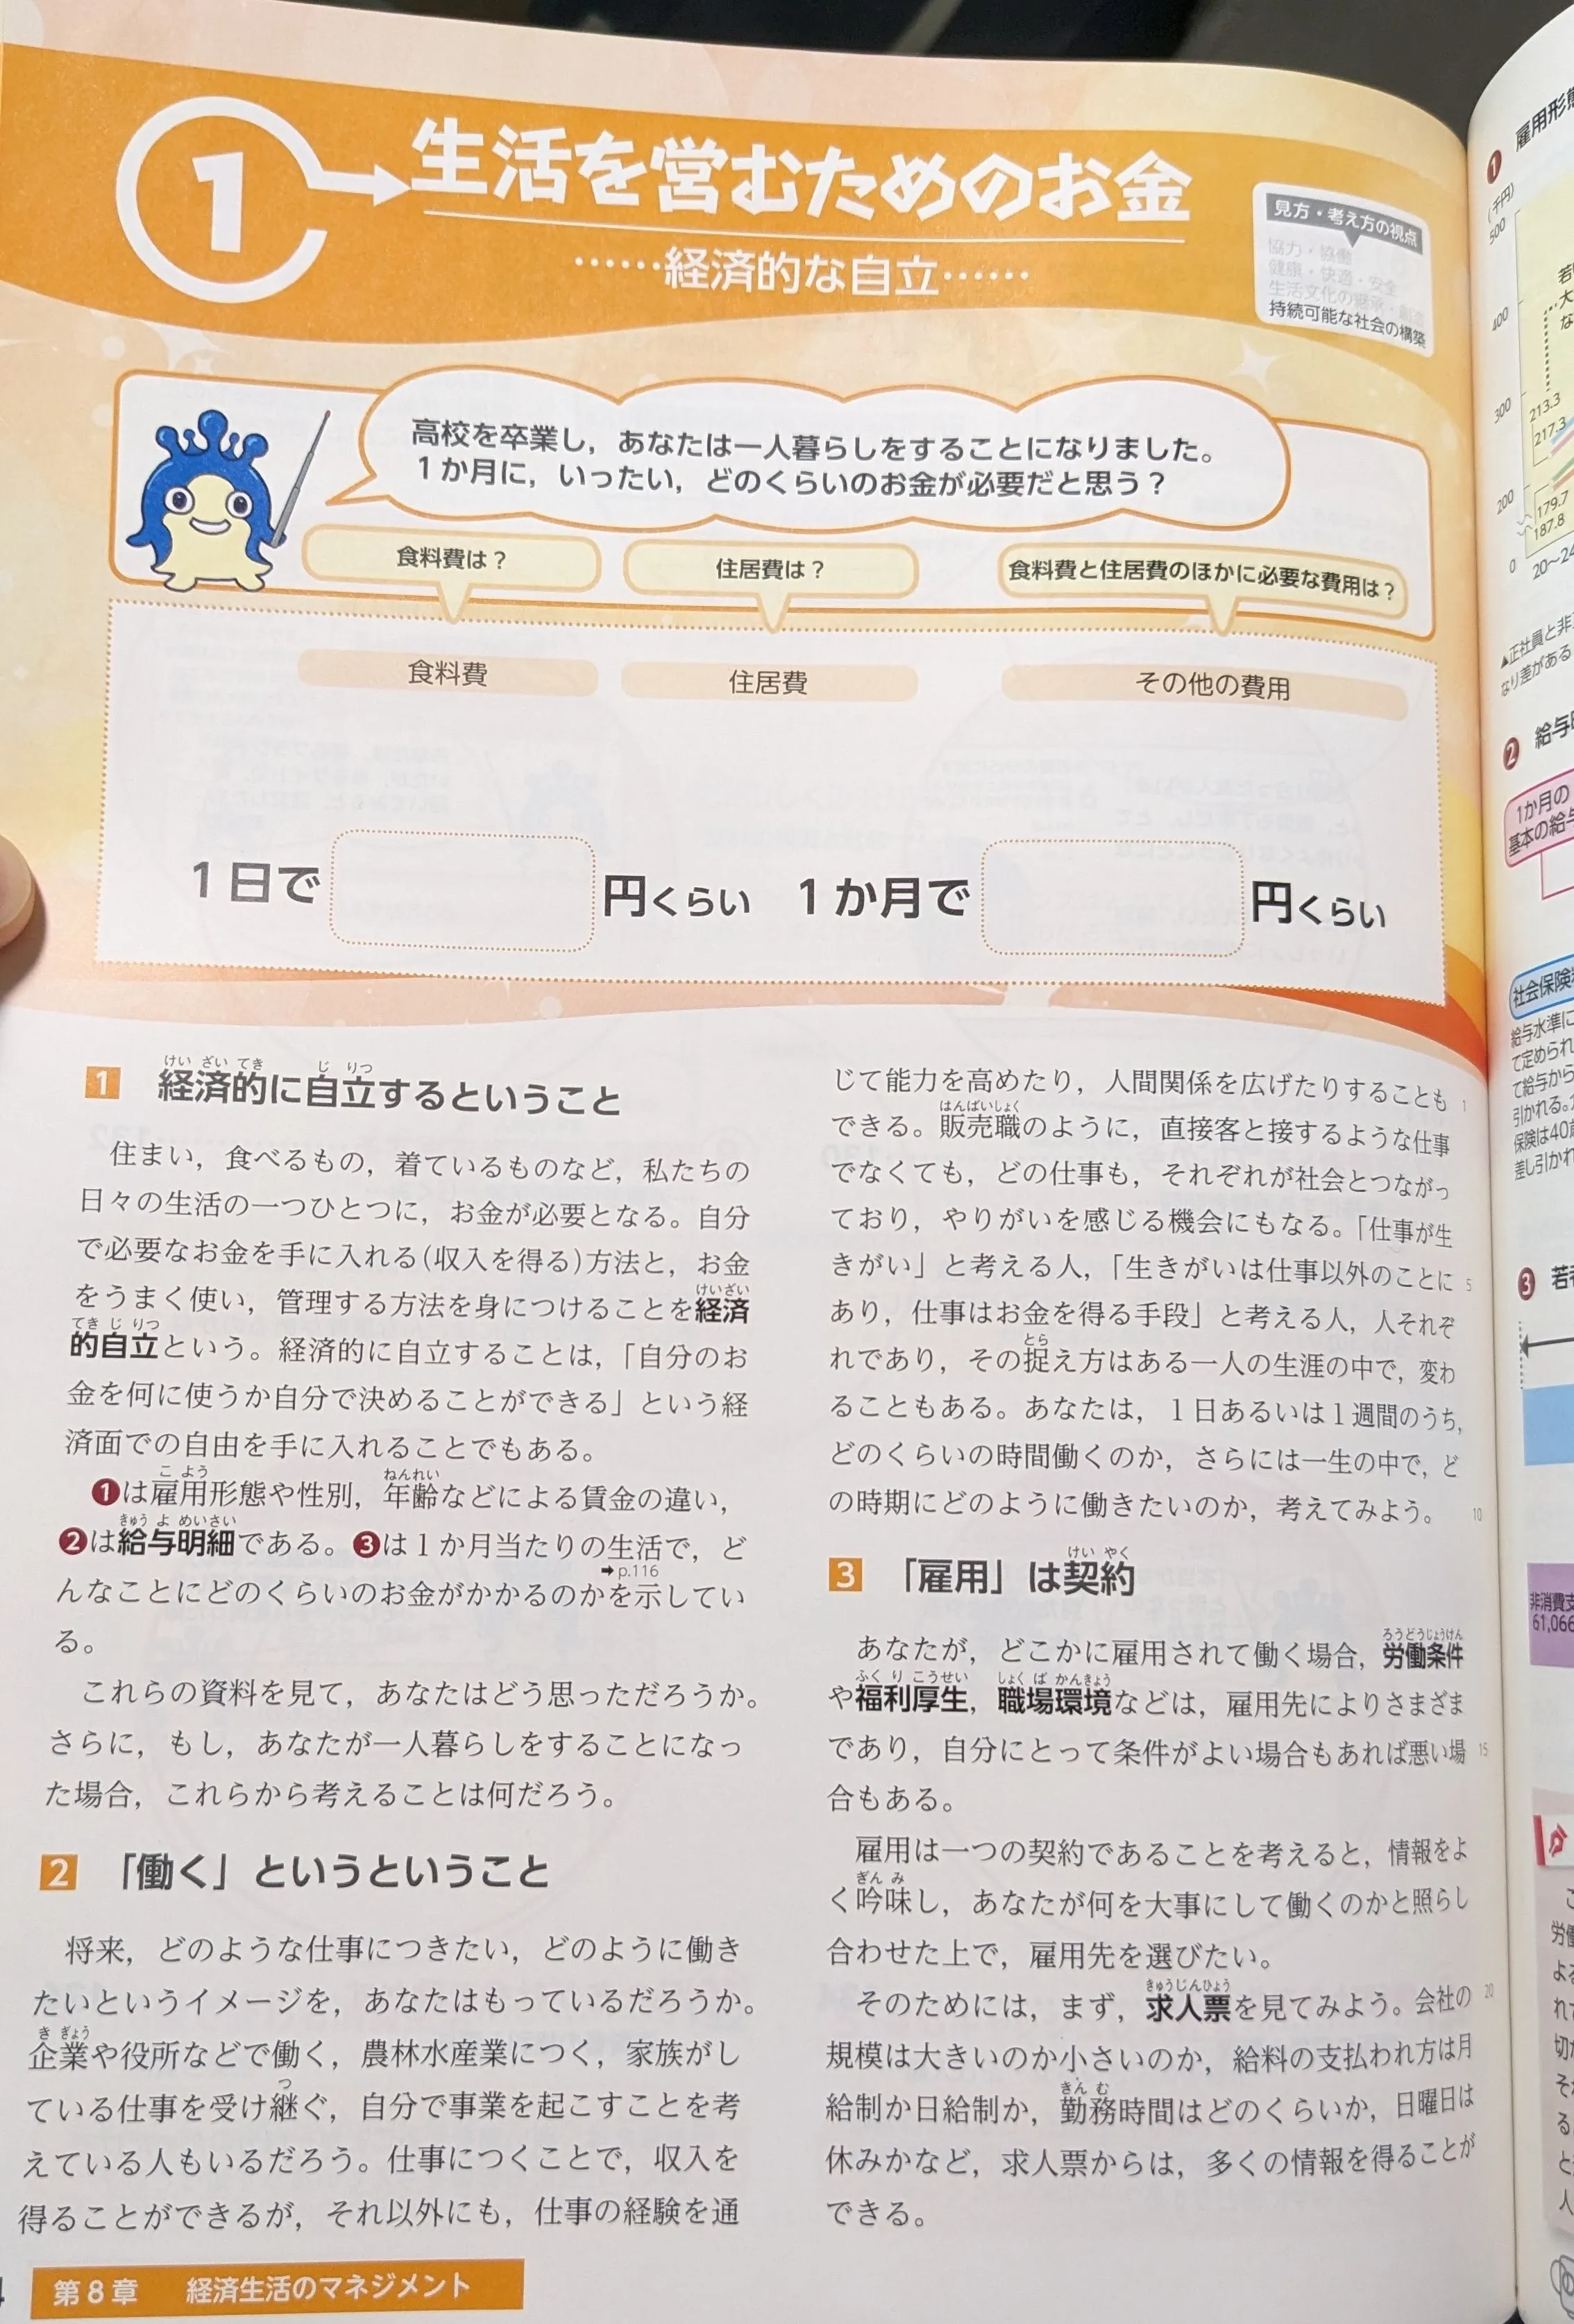 1
生活を営むためのお金
……経済的な自立……
見方・考え方の視点
協力・協働
健康・快適・安全
生活文化の継承・創造
持続可能な社会の構築
高校を卒業し，あなたは一人暮らしをすることになりました。
1か月に，いったい，どのくらいのお金が必要だと思う？
食料費は？
住居費は？
食料費と住居費のほかに必要な費用は？
食料費
住居費
その他の費用
1日で 円くらい 1か月で 円くらい
1 経済的に自立するということ
けい ざい てき じ りつ
住まい，食べるもの，着ているものなど，私たちの
日々の生活の一つひとつに，お金が必要となる。自分
で必要なお金を手に入れる（収入を得る）方法と，お金
をうまく使い，管理する方法を身につけることを経済
けいざい
的自立という。経済的に自立することは，「自分のお
てき じ りつ
金を何に使うか自分で決めることができる」という経
済面での自由を手に入れることでもある。
❶は雇用形態や性別，年齢などによる賃金の違い，
こ よう ねんれい
❷は給与明細である。❸は1か月当たりの生活で，ど
きゅう よ めいさい
➡p.116
んなことにどのくらいのお金がかかるのかを示してい
る。
これらの資料を見て，あなたはどう思っただろうか。
さらに，もし，あなたが一人暮らしをすることになっ
た場合，これらから考えることは何だろう。
2 「働く」というということ
将来，どのような仕事につきたい，どのように働き
たいというイメージを，あなたはもっているだろうか。
企業や役所などで働く，農林水産業につく，家族がし
き ぎょう
ている仕事を受け継ぐ，自分で事業を起こすことを考
つ
えている人もいるだろう。仕事につくことで，収入を
得ることができるが，それ以外にも，仕事の経験を通
じて能力を高めたり，人間関係を広げたりすることも 1
できる。販売職のように，直接客と接するような仕事
はんばいしょく
でなくても，どの仕事も，それぞれが社会とつながっ
ており，やりがいを感じる機会にもなる。「仕事が生
きがい」と考える人，「生きがいは仕事以外のことに 5
あり，仕事はお金を得る手段」と考える人，人それぞ
れであり，その捉え方はある一人の生涯の中で，変わ
とら
ることもある。あなたは，1日あるいは1週間のうち，
どのくらいの時間働くのか，さらには一生の中で，ど
の時期にどのように働きたいのか，考えてみよう。 10
3 「雇用」は契約
けい やく
あなたが，どこかに雇用されて働く場合，労働条件
ろうどうじょうけん
や福利厚生，職場環境などは，雇用先によりさまざま
ふく り こうせい しょく ば かんきょう
であり，自分にとって条件がよい場合もあれば悪い場 15
合もある。
雇用は一つの契約であることを考えると，情報をよ
く吟味し，あなたが何を大事にして働くのかと照らし
ぎん み
合わせた上で，雇用先を選びたい。
そのためには，まず，求人票を見てみよう。会社の 20
きゅうじんひょう
規模は大きいのか小さいのか，給料の支払われ方は月
給制か日給制か，勤務時間はどのくらいか，日曜日は
きん む
休みかなど，求人票からは，多くの情報を得ることが
できる。
第8章 経済生活のマネジメント
❶ 雇用形態
(千円)
500
400
300
200
0
213.3
217.3
179.7
187.8
20〜24
▲正社員と非正
なり差がある
❷ 給与明
1か月の
基本の給与
社会保険料
給与水準に
て定められ
て給与から
引かれる。
保険は40歳
差し引かれ
❸ 若者
非消費支
61,066